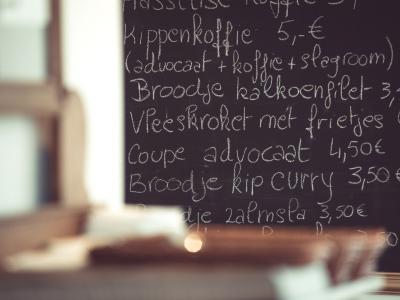 Hasseltse koffie 5,
Kippenkoffie 5,-€
(advocaat + koffie + slagroom)
Broodje kalkoenfilet 3,
Vleeskroket met frietjes
Coupe advocaat 4,50€
Broodje kip curry 3,50€
dje zalmsla 3,50€